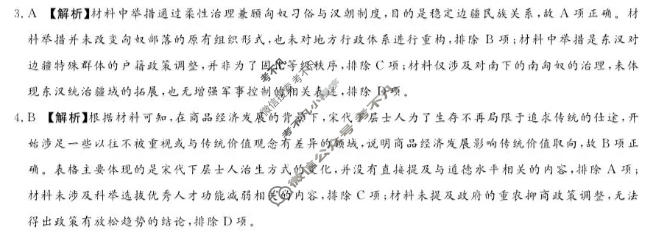 3. A 【解析】材料中举措通过柔性治理兼顾匈奴习俗与汉朝制度,目的是稳定边疆民族关系,故 A 项正确。材
料举措并未改变匈奴部落的原有组织形式,也未对地方行政体系进行重构,排除 B 项;材料中举措是东汉对
边疆特殊群体的户籍政策调整,并非为了固化等级秩序,排除 C 项;材料仅涉及对南下的南匈奴的治理,未体
现东汉统治疆域的拓展,也无增强军事控制的相关表述,排除 D 项。
4. B 【解析】根据材料可知,在商品经济发展的背景下,宋代下层士人为了生存不再局限于追求传统的仕途,开
始涉足一些以往不被重视或与传统价值观念有差异的领域,说明商品经济发展影响传统价值取向,故 B 项正
确。表格主要体现的是宋代下层士人治生方式的变化,并没有直接提及与道德水平相关的内容,排除 A 项;
材料未涉及科举选拔优秀人才功能减弱相关的内容,排除 C 项;材料未提及政府的重农抑商政策调整,无法
得出政策有放松趋势的结论,排除 D 项。